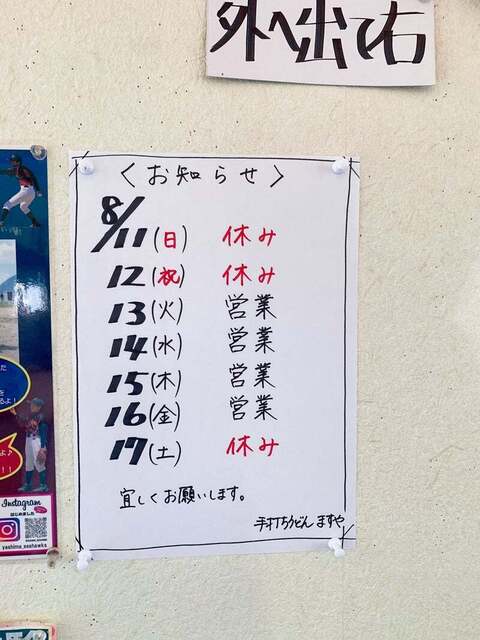 外へ出て右
〈お知らせ〉
8/11(日) 休み
12(祝) 休み
13(火) 営業
14(水) 営業
15(木) 営業
16(金) 営業
17(土) 休み
宜しくお願いします。
手打ちうどん ますや
Instagram
はじめました
yashima_seahawks